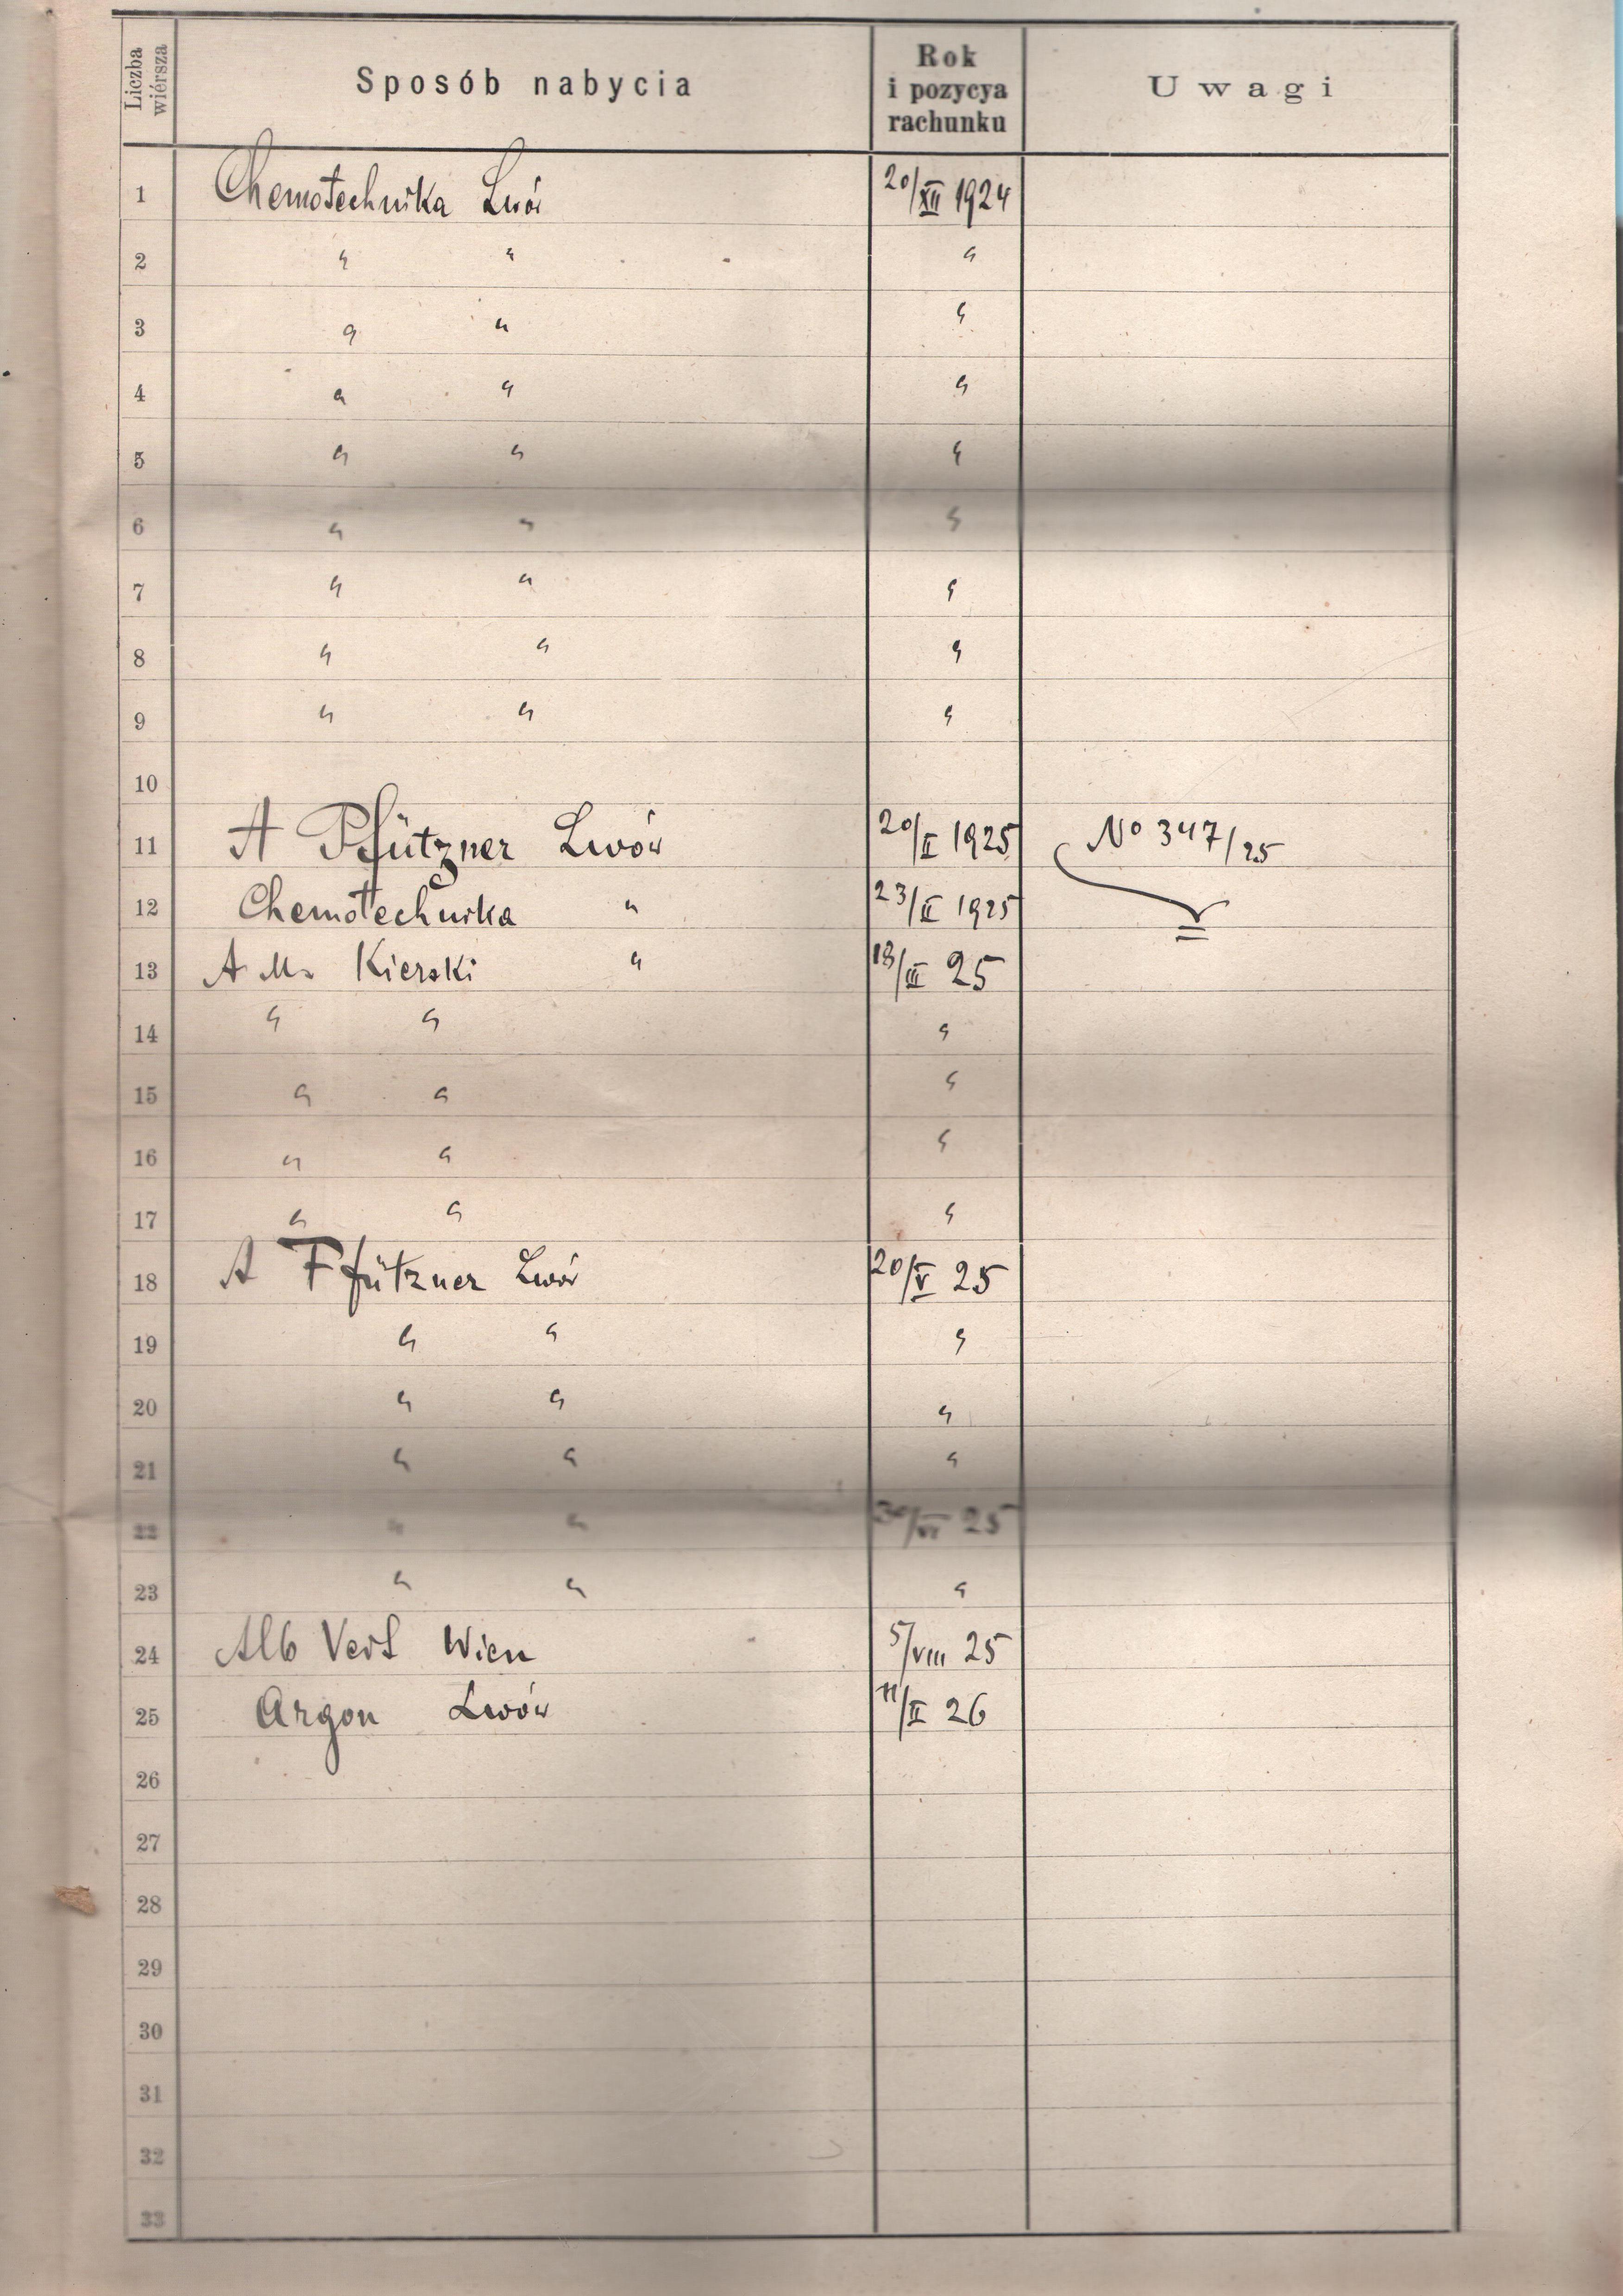 Liczba wiérsza Sposób nabycia Rok i pozycya rachunku Uwagi
1 Chemotechnika Lwów 20/XII 1924
2 " " "
3 " " "
4 " " "
5 " " "
6 " " "
7 " " "
8 " " "
9 " " "
10
11 A Pfützner Lwów 20/II 1925 No 347/25
12 Chemotechnika " 23/II 1925
13 A M. Kierski " 13/III 25
14 " " "
15 " " "
16 " " "
17 " " "
18 A Pfützner Lwów 20/V 25
19 " " "
20 " " "
21 " " "
22 " " 30/VI 25
23 " " "
24 Alb Wien 5/VIII 25
25 Argon Lwów 11/II 26
26
27
28
29
30
31
32
33